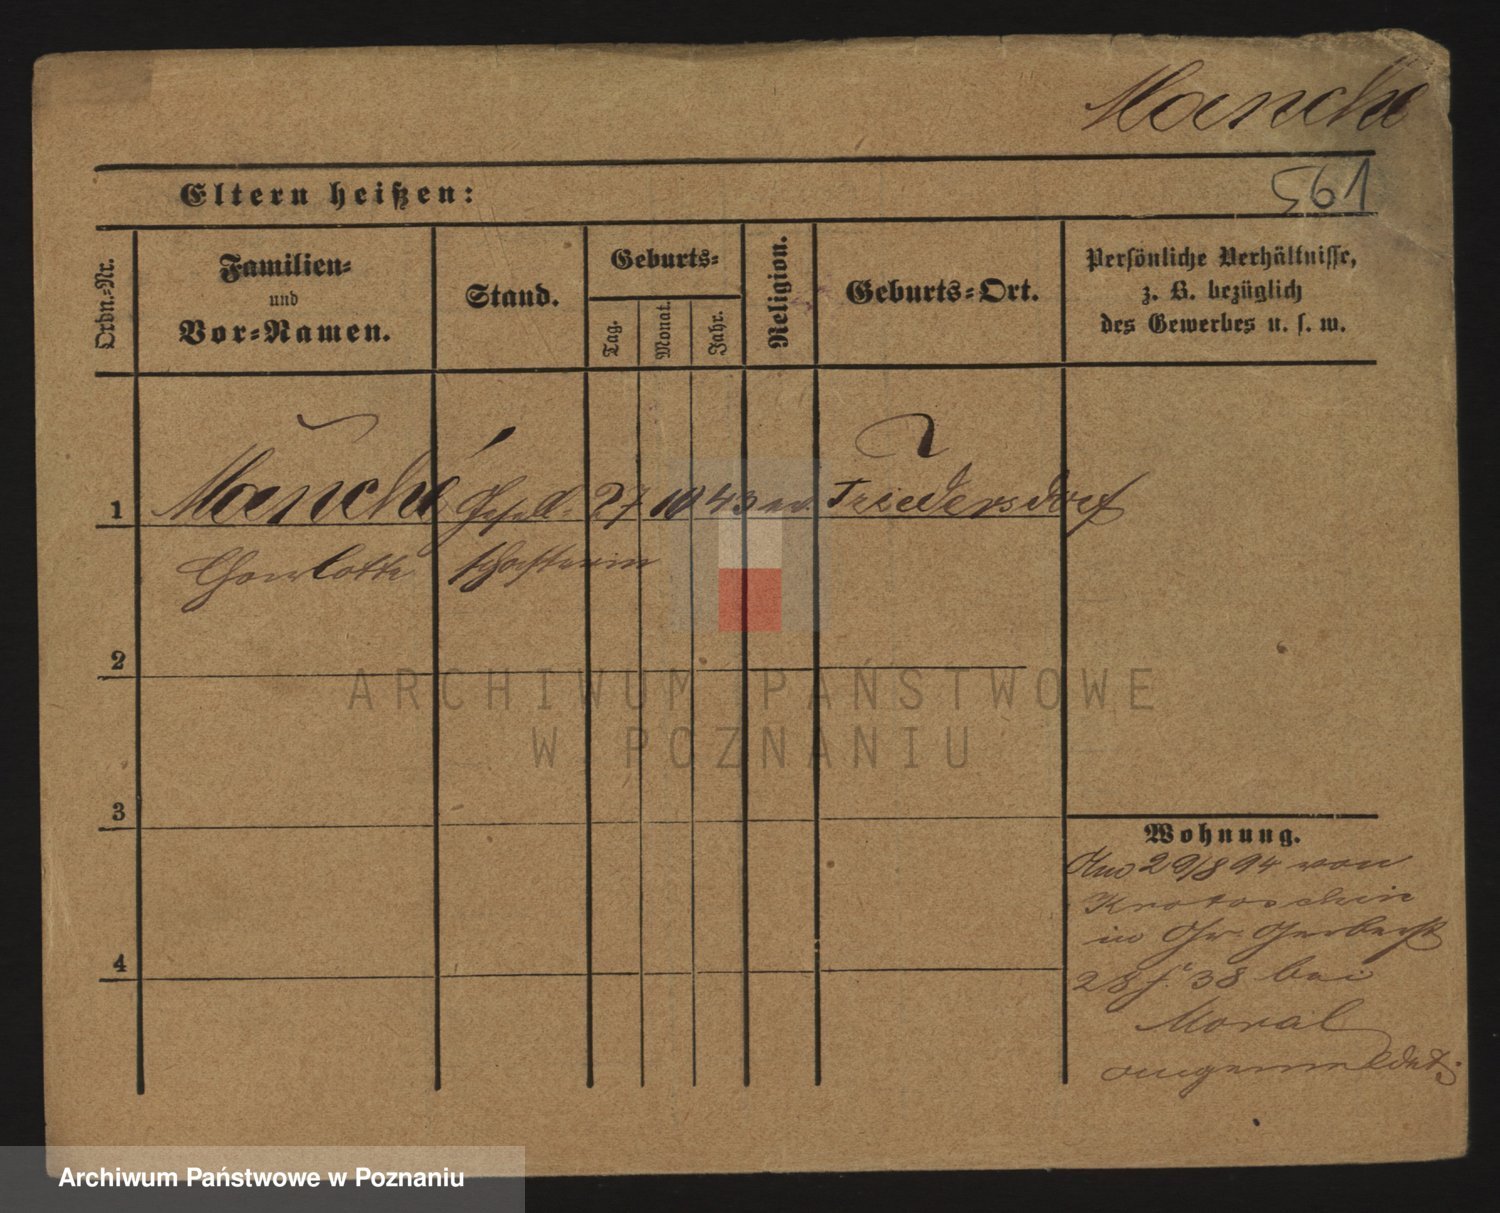 Manché
561
Eltern heißen:
Ordn.-Nr.
Familien-
und
Vor-Namen.
Stand.
Geburts-
Tag.
Monat.
Jahr.
Religion.
Geburts-Ort.
Persönliche Verhältnisse,
z. B. bezüglich
des Gewerbes u. s. w.
1
Manché Gesell- 27 10 43 ev. Friedersdorf
Charlotte schafterin
2
3
4
Wohnung.
29/8 94 von
Krotoschin
in Gr. Gerberst
28 38 bei
Moral
angemeldet.
ARCHIWUM PAŃSTWOWE
W POZNANIU
Archiwum Państwowe w Poznaniu